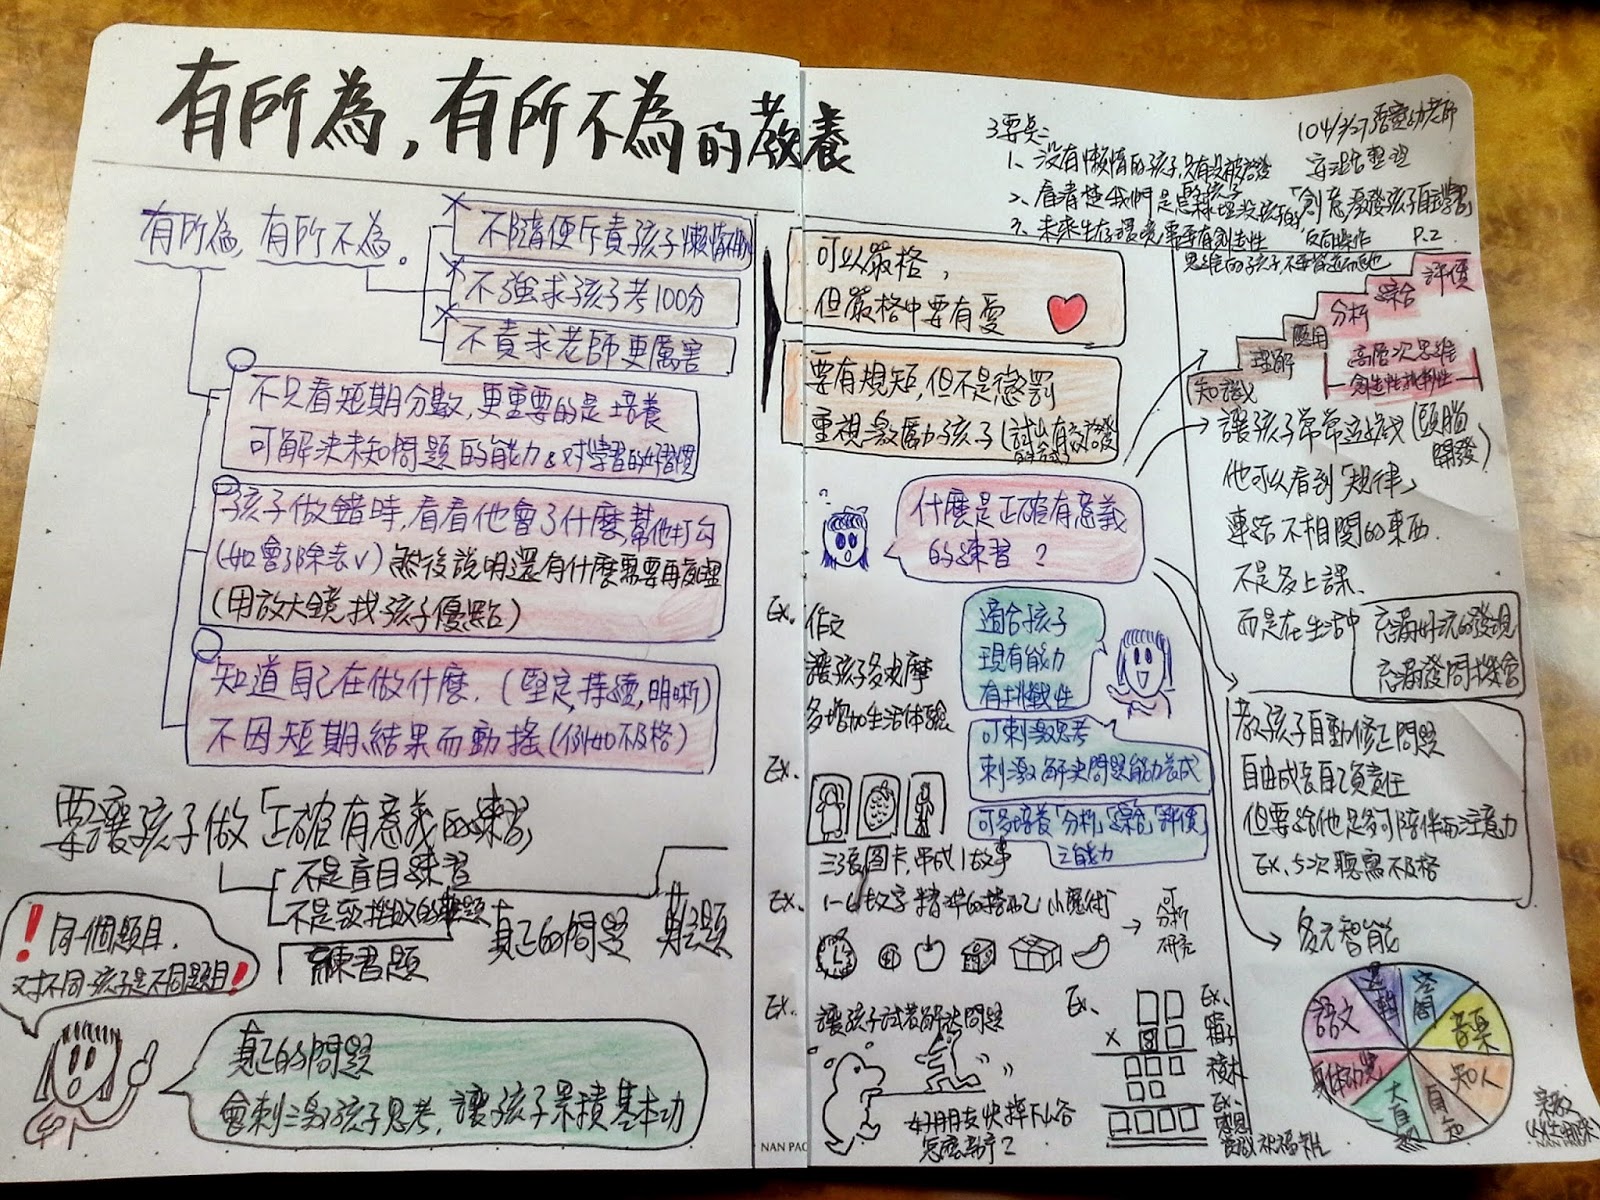 有所為,有所不為的教養
104/3/27
3要点:
1、没有懶惰的孩子,只有没被啟發
2、看清楚我們是
3、未來生存環境需要有創造性
「創意激發孩子自主學習」
P.2
有所為,有所不為.
不隨便斥責孩子懶惰
不強求孩子考100分
不責求老師更厲害
不只看短期分數,更重要的是培養
可解決未知問題的能力&對學習的好習慣
孩子做錯時,看看他會了什麼,幫他打勾
(如會了除表v)然後說明還有什麼需要再處理
(用放大鏡找孩子優點)
知道自己在做什麼.(堅定,持續,明晰)
不因短期結果而動搖(例如不及格)
要讓孩子做「正確有意義的練習」
不是盲目練習
不是致挫敗的難題
練習題
真正的問題
難題
! 同一個題目,
對不同孩子是不同題目!
真正的問題
會刺激孩子思考,讓孩子累積基本功
可以嚴格,
但嚴格中要有愛
要有規矩,但不是懲罰
重視激勵孩子
什麼是正確有意義
的練習?
適合孩子
現有能力
有挑戰性
可刺激思考
刺激解決問題能力養成
可多培養「分析」「綜合」「評價」
之能力
Ex. 作文
讓孩子多觀摩
多增加生活体驗
Ex.
三張圖卡,串成1故事
Ex. 1-6數字
小魔術
→ 可分析研究
Ex. 讓孩子試著解決問題
好朋友快掉下山谷
怎麼辦?
Ex.
×
8
Ex.
積木
Ex.
知識
理解
應用
分析
綜合
評價
高層次思維
創造性批判性
讓孩子常常玩遊戲(頭腦開發)
他可以看到「規律」
連結不相關的東西.
不是多上課、
而是在生活中
充滿好玩的發現
充滿發問機會
教孩子自動修正問題
自由成長自己負責任
但要給他足夠陪伴而注意力
Ex. 5次聽寫不及格
多元智能
語文
邏輯
空間
音樂
知人
自知
大自然
身体动觉
NAN PAO
NAN PAO